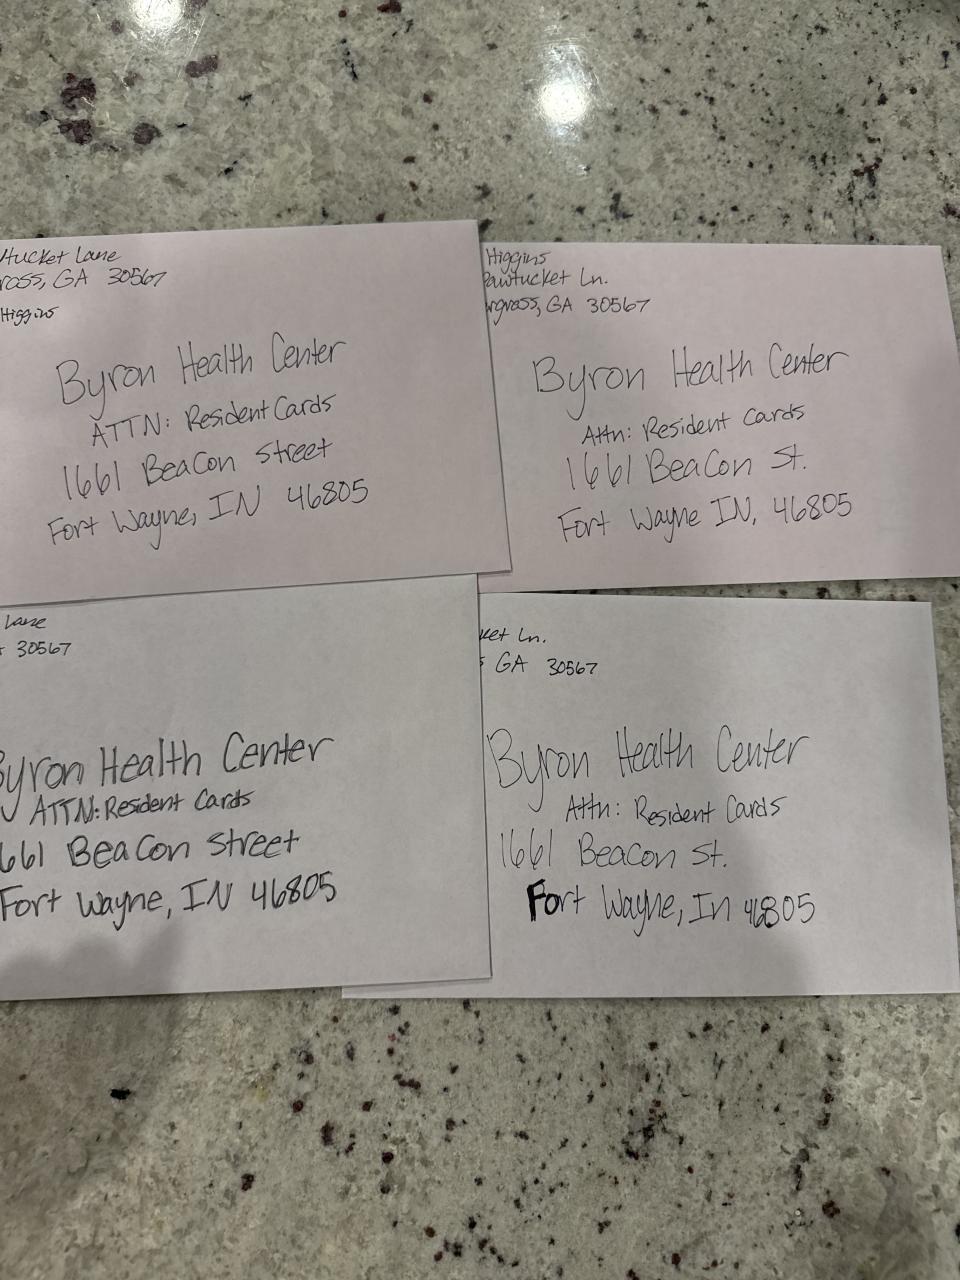 tucket Lane
ross, GA 30567
Higgins
Byron Health Center
ATTN: Resident Cards
1661 Beacon Street
Fort Wayne, IN 46805
Higgins
Pawtucket Ln.
rgrass, GA 30567
Byron Health Center
Attn: Resident Cards
1661 Beacon St.
Fort Wayne IN, 46805
Lane
30567
Byron Health Center
ATTN: Resident Cards
661 Beacon Street
Fort Wayne, IN 46805
ket Ln.
s GA 30567
Byron Health Center
Attn: Resident Cards
1661 Beacon St.
Fort Wayne, In 46805